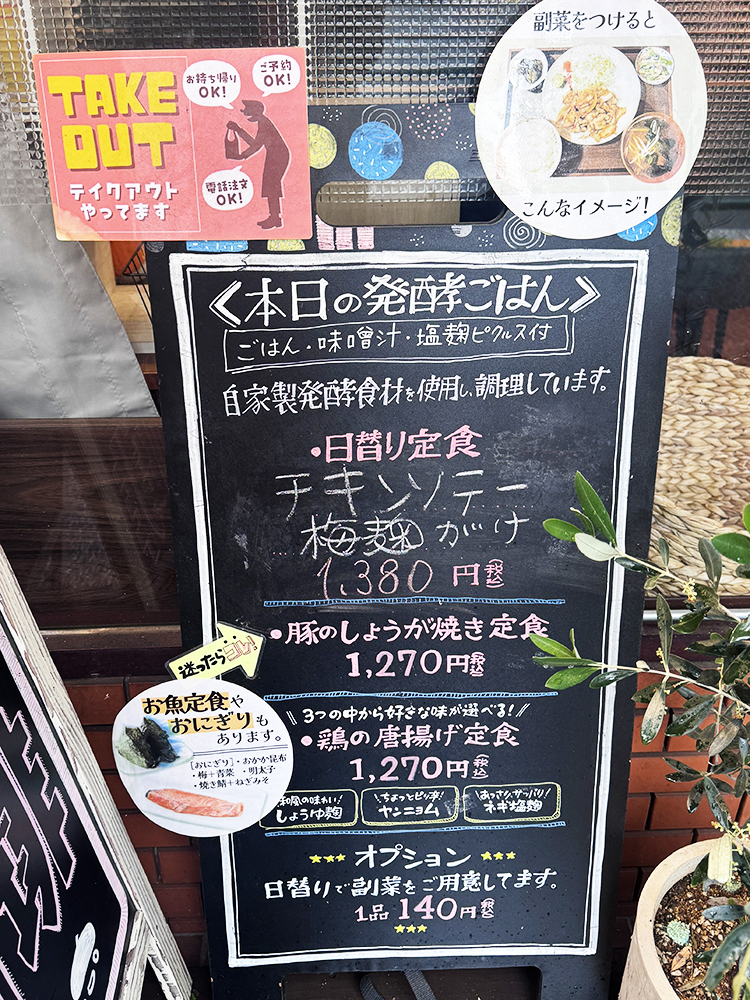 副菜をつけると
こんなイメージ!
TAKE
OUT
テイクアウト
やってます
お持ち帰り
OK!
ご予約
OK!
電話注文
OK!
《本日の発酵ごはん》
ごはん・味噌汁・塩麹ピクルス付
自家製発酵食材を使用し、調理しています。
・日替り定食
チキンソテー
梅麹がけ
1,380円(税込)
・豚のしょうが焼き定食
1,270円(税込)
迷ったらコレ!
お魚定食や
おにぎりも
あります。
[おにぎり]・おかか昆布
・梅+青菜 ・明太子
・焼き鯖+ねぎみそ
\\3つの中から好きな味が選べる!//
・鶏の唐揚げ定食
1,270円(税込)
和風の味わい!
しょうゆ麹
\ちょっとピリ辛!/
ヤンニョム
\あっさり/サッパリ!/
ネギ塩麹
★★★ オプション ★★★
日替りで副菜をご用意してます。
1品 140円(税込)
★★★